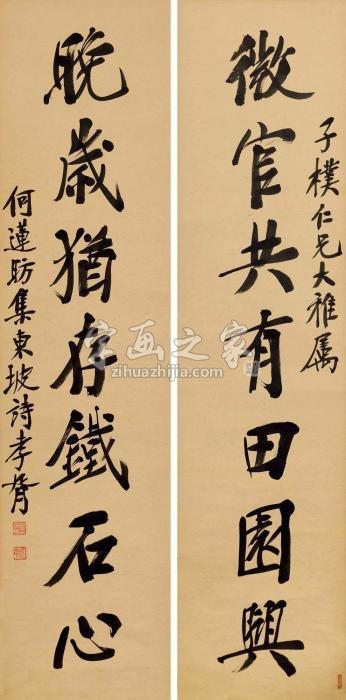 子樸仁兄大雅属
微官共有田園興
晚歲猶存鐵石心
何蓮舫集東坡詩孝胥
字画之家
zihuazhijia.com